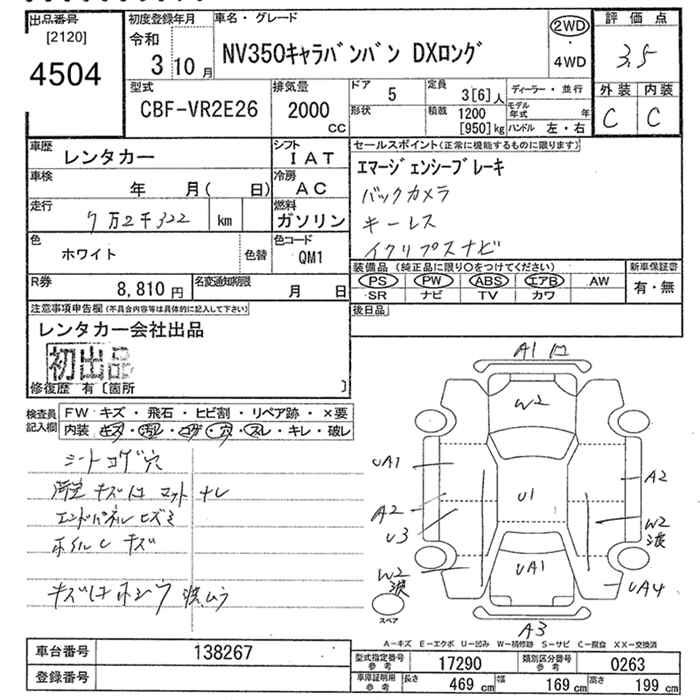 出品番号
[2120]
4504
初度登録年月
令和
3 10月
車名・グレード
NV350キャラバンバン DXロング
2WD
・
4WD
評価点
3.5
外装 内装
C C
型式
CBF-VR2E26
排気量
2000
cc
ドア
5
定員
3[6]人
ディーラー・並行
形状
積載 1200
[950]kg
モデル年式 年
ハンドル 左・右
車歴
レンタカー
シフト
IAT
車検
年 月( 日)
冷房
AC
走行
7万2千322 km
燃料
ガソリン
色
ホワイト
色替
色コード
QM1
R券
8,810円
名変通知期限
月 日
セールスポイント(正常に機能するものに限ります)
エマージェンシーブレーキ
バックカメラ
キーレス
イクリプスナビ
装備品 (純正品に限り○をつけてください)
PS PW ABS エアB AW
SR ナビ TV カワ
新車保証書
有・無
後日品
注意事項申告欄(不具合内容等は具体的に記入して下さい)
レンタカー会社出品
初出品
修復歴 有〔箇所 〕
検査員記入欄
FW キズ・飛石・ヒビ割・リペア跡・×要
内装 キズ・汚レ・コゲ・穴・スレ・キレ・破レ
シートコゲ穴
キズ マット ナレ
エンドパネルヒズミ
ホイルし キズ
キズ ボシウ 波ムラ
A1
W2
UA1
A2
A2
U1
U3
W2
波
W2
波
UA1
UA4
スペア
A3
A-キズ E-エクボ U-凹み W-補修跡 S-サビ C-腐食 XX-交換済
車台番号
138267
登録番号
型式指定番号
参考
17290
類別区分番号
参考
0263
車庫証明用
参考
長さ 469 cm
幅 169 cm
高さ 199 cm